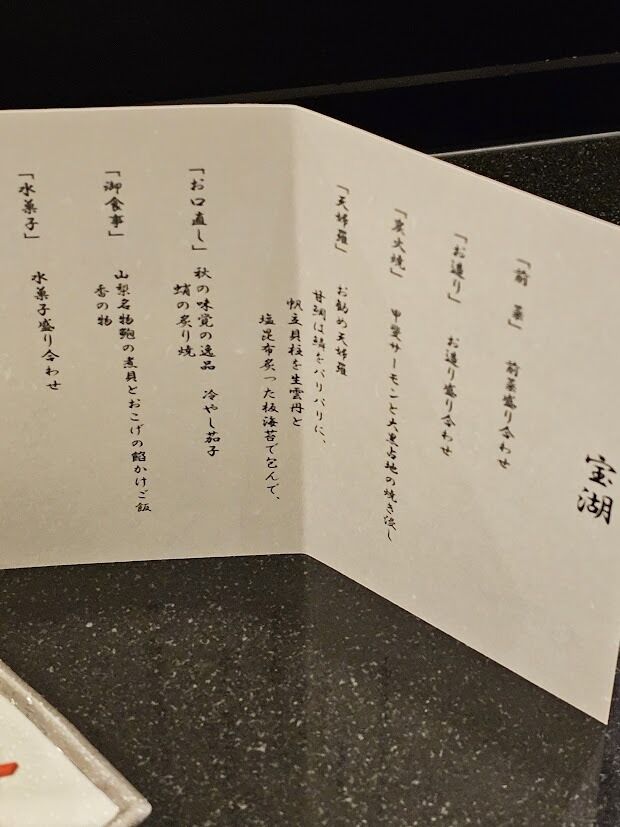 宝湖
「前 菜」 前菜盛り合わせ
「お造り」 お造り盛り合わせ
「炭火焼」 甲斐サーモンと大黒占地の焼き浸し
「天婦羅」 お勧め天婦羅
甘鯛は鱗をパリパリに、
帆立貝柱を生雲丹と
塩昆布炙った板海苔で包んで、
「お口直し」 秋の味覚の逸品 冷やし茄子
蛸の炙り焼
「御食事」 山梨名物鮑の煮貝とおこげの餡かけご飯
香の物
「水菓子」 水菓子盛り合わせ